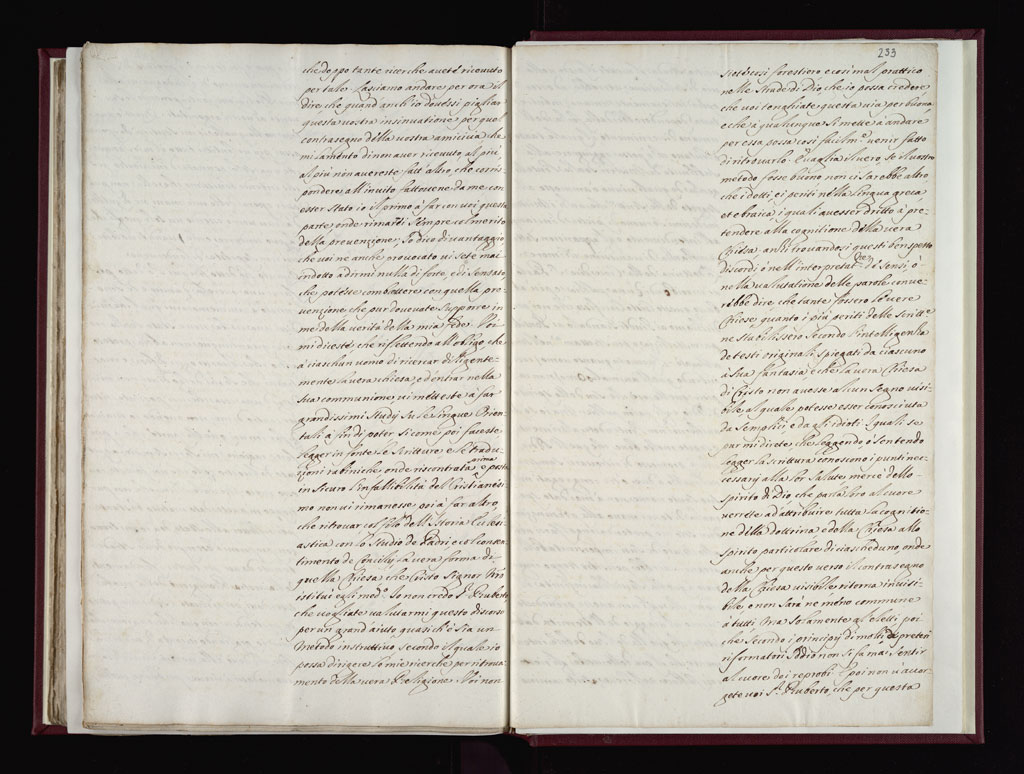 che doppo tante ricerche avete ricevuto
per tale. Lasciamo andare per ora il
dire che quand'anch'io dovessi pigliar
questa vostra insinuatione per quel
contrasegno della vostra amicivia che
mi lamento di non aver ricevuto, al più
al più non avereste fatt'altro, che corris-
pondere all'invito fattovene da me con
esser stato io il primo à far con voi questa
parte, onde rimarrà sempre col merito
della prevenzione; Io dico di vantaggio
che voi ne anche provocato vi sete mai
indotto a dirmi nulla di forte, e di sensato,
che potesse combattere con quella pre-
venzione, che pur dovevate supporre in
me della verità della mia fede. Voi
mi diceste, che riflettendo all'obligo, che
à ciaschun uomo di ricercar diligente-
mente la vera chiesa, e d'entrar nella
sua communione, vi metteste à far
grandissimi studij su le lingue Orien-
tali à fin di poter sicome poi faceste
legger in fonte le Scritture, e le tradu-
zioni rabiniche, onde riscontrata prima e posta
in sicuro l'infallibilità del Cristianesi-
mo non vi rimanesse poi à far altro,
che ritrovar col filo dell'Istoria Eclesi-
astica con lo studio de Padri e col consen-
timento de Concilij la vera forma di
quella Chiesa, che Cristo Signor Nro
istituì egli med.o Io non credo S.r Ruberto,
che vogliate valutarmi questo discorso
per un grand aiuto, quasich'è sia un
metodo instruttivo secondo il quale io
possa dirigere le mie ricerche per ritrova-
mento della vera Religione. Voi non
233
siete così forestiero e così mal prattico
nelle strade di Dio, che io possa credere
che voi tenghiate questa via per buona
e che à qualunque si mette à andare
per essa possa così facilm.e venir fatto
di ritrovarlo. Vaglia il vero, se il vostro
metodo fosse buono non ci sarebbe altro
che i dotti, e i periti nella lingua greca
et ebraica i quali avesser dritto à pre-
tendere alla cognitione della vera
Chiesa. anzi trovandosi questi ben spesso
discordi ò nell'interpretatne de sensi, ò
nella valutatione delle parole conve-
rebbe dire che tante fossero le vere
Chiese, quanto i più periti delle Scritte
ne stabilissero secondo l'intelligenza
de testi originali spiegati da ciascuno
à sua fantasia, e che la vera Chiesa
di Cristo non avesse alcun segno visi-
bile, al quale potesse esser conosciuta
da semplici e da gli idioti: I quali se
pur mi direte, che leggendo ò sentendo
legger la scrittura conoscono i punti nec-
cessary alla lor salute mercè dello
spirito di Dio, che parla loro al cuore
verrete ad attribuire tutta la cognitio-
ne della dottrina, e della Chiesa allo
spirito particolare di ciascheduno onde
anche per questo verso il contrasegno
della Chiesa visibile ritorna invisi-
bile, e non sarà ne meno commune
à tutti ma solamente a gl'eletti, poi
che secondo i principij di molti de pretesi
riformatori Iddio non si fa mai sentir
al cuore dei reprobi. E poi non v'accor-
gete voi S.r Ruberto, che per questa